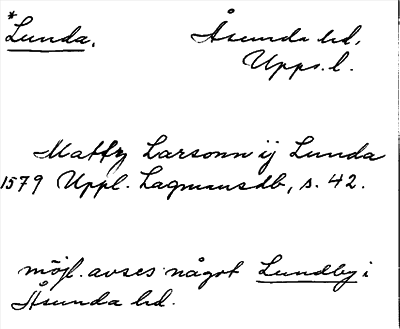 *Lunda. Åsunda hd.
Upps. l.
Matts Larsonn ij Lunda
1579 Uppl. Lagmansdb, s. 42.
möjl. avses något Lundby i
Åsunda hd.